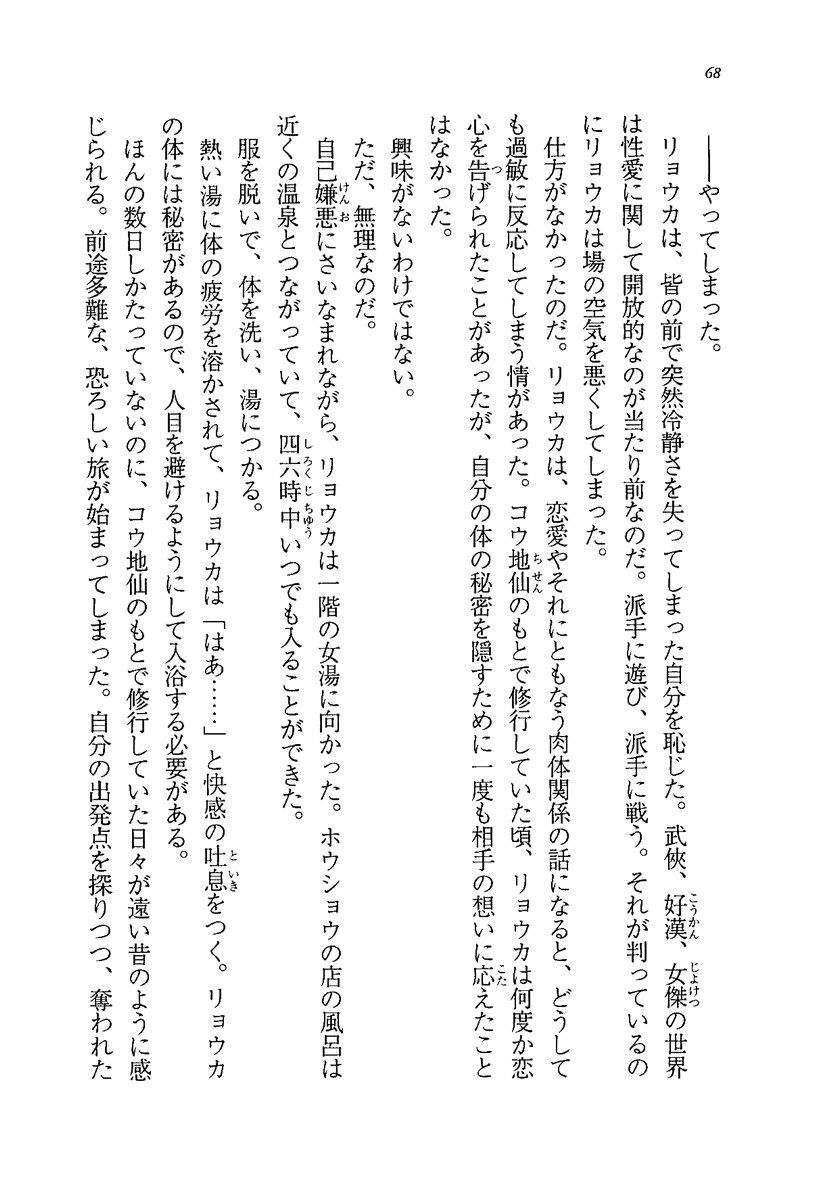 68
――やってしまった。
リョウカは、皆の前で突然冷静さを失ってしまった自分を恥じた。武侠、好漢、女傑の世界
は性愛に関して開放的なのが当たり前なのだ。派手に遊び、派手に戦う。それが判っているの
にリョウカは場の空気を悪くしてしまった。
仕方がなかったのだ。リョウカは、恋愛やそれにともなう肉体関係の話になると、どうして
も過敏に反応してしまう情があった。コウ地仙のもとで修行していた頃、リョウカは何度か恋
心を告げられたことがあったが、自分の体の秘密を隠すために一度も相手の想いに応えたこと
はなかった。
興味がないわけではない。
ただ、無理なのだ。
自己嫌悪にさいなまれながら、リョウカは一階の女湯に向かった。ホウショウの店の風呂は
近くの温泉とつながっていて、四六時中いつでも入ることができた。
服を脱いで、体を洗い、湯につかる。
熱い湯に体の疲労を溶かされて、リョウカは「はあ……」と快感の吐息をつく。リョウカ
の体には秘密があるので、人目を避けるようにして入浴する必要がある。
ほんの数日しかたっていないのに、コウ地仙のもとで修行していた日々が遠い昔のように感
じられる。前途多難な、恐ろしい旅が始まってしまった。自分の出発点を探りつつ、奪われた